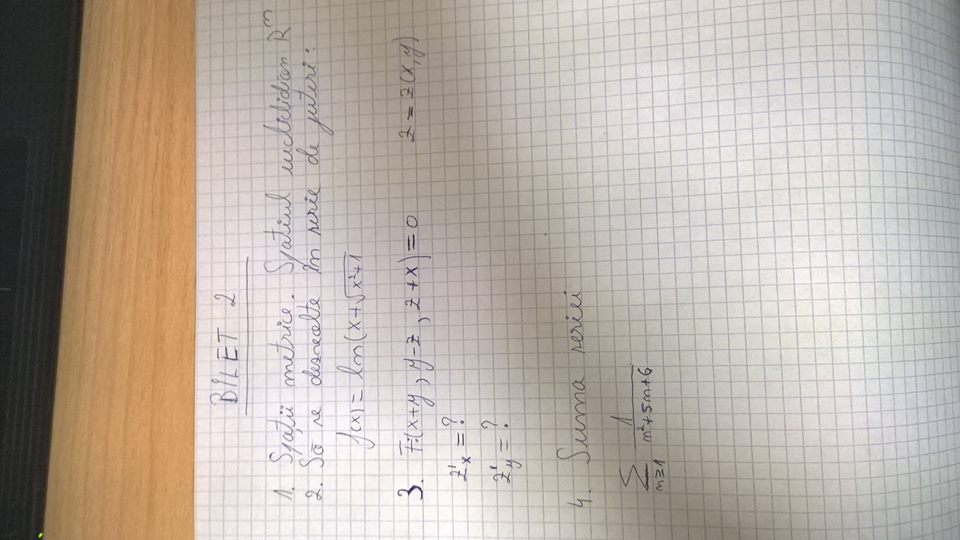 BILET 2
1. Spații metrice. Spațiul euclidian Rⁿ
2. Să se dezvolte în serie de puteri:
f(x) = ln(x+√(x²+1)
3. F(x+y, y-z, z+x) = 0 z = z(x,y)
z'x = ?
z'y = ?
4. Suma seriei
∑ n≥1 1/(n²+5n+6)